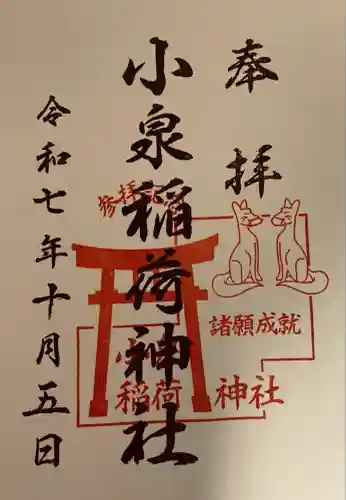 奉拝
小泉稲荷神社
令和七年十月五日
参拝記
諸願成就
小泉
稲荷
神社